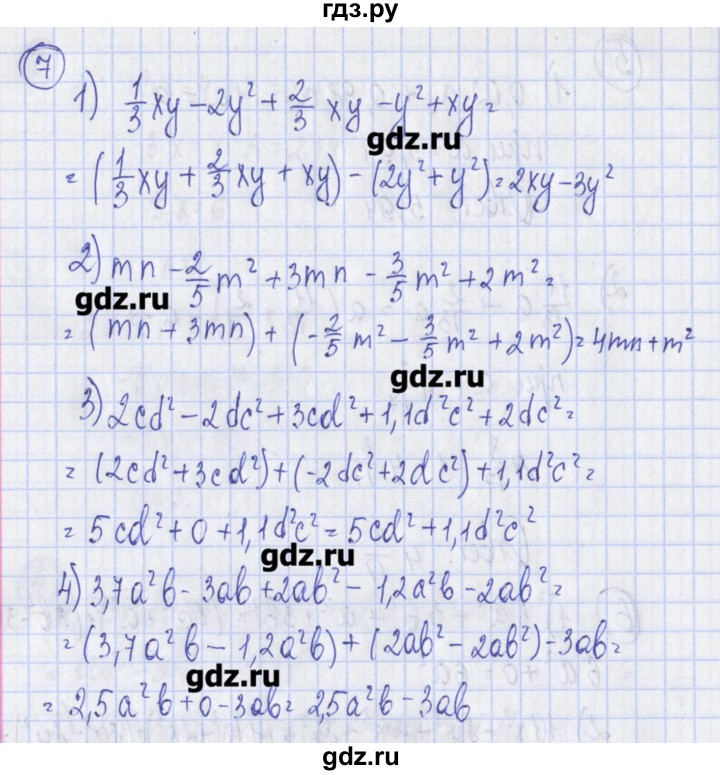 гдз.ру
7
1) 1/3 xy - 2y² + 2/3 xy - y² + xy =
gdz.ru
= (1/3 xy + 2/3 xy + xy) - (2y² + y²) = 2xy - 3y²
2) mn - 2/5 m² + 3mn - 3/5 m² + 2m² =
gdz.ru
= (mn + 3mn) + (-2/5 m² - 3/5 m² + 2m²) = 4mn + m²
gdz.ru
3) 2cd² - 2dc² + 3cd² + 1,1d²c² + 2dc² =
= (2cd² + 3cd²) + (-2dc² + 2dc²) + 1,1d²c² =
= 5cd² + 0 + 1,1d²c² = 5cd² + 1,1d²c²
gdz.ru
4) 3,7a²b - 3ab + 2ab² - 1,2a²b - 2ab² =
= (3,7a²b - 1,2a²b) + (2ab² - 2ab²) - 3ab =
gdz.ru
= 2,5a²b + 0 - 3ab = 2,5a²b - 3ab
gdz.ru